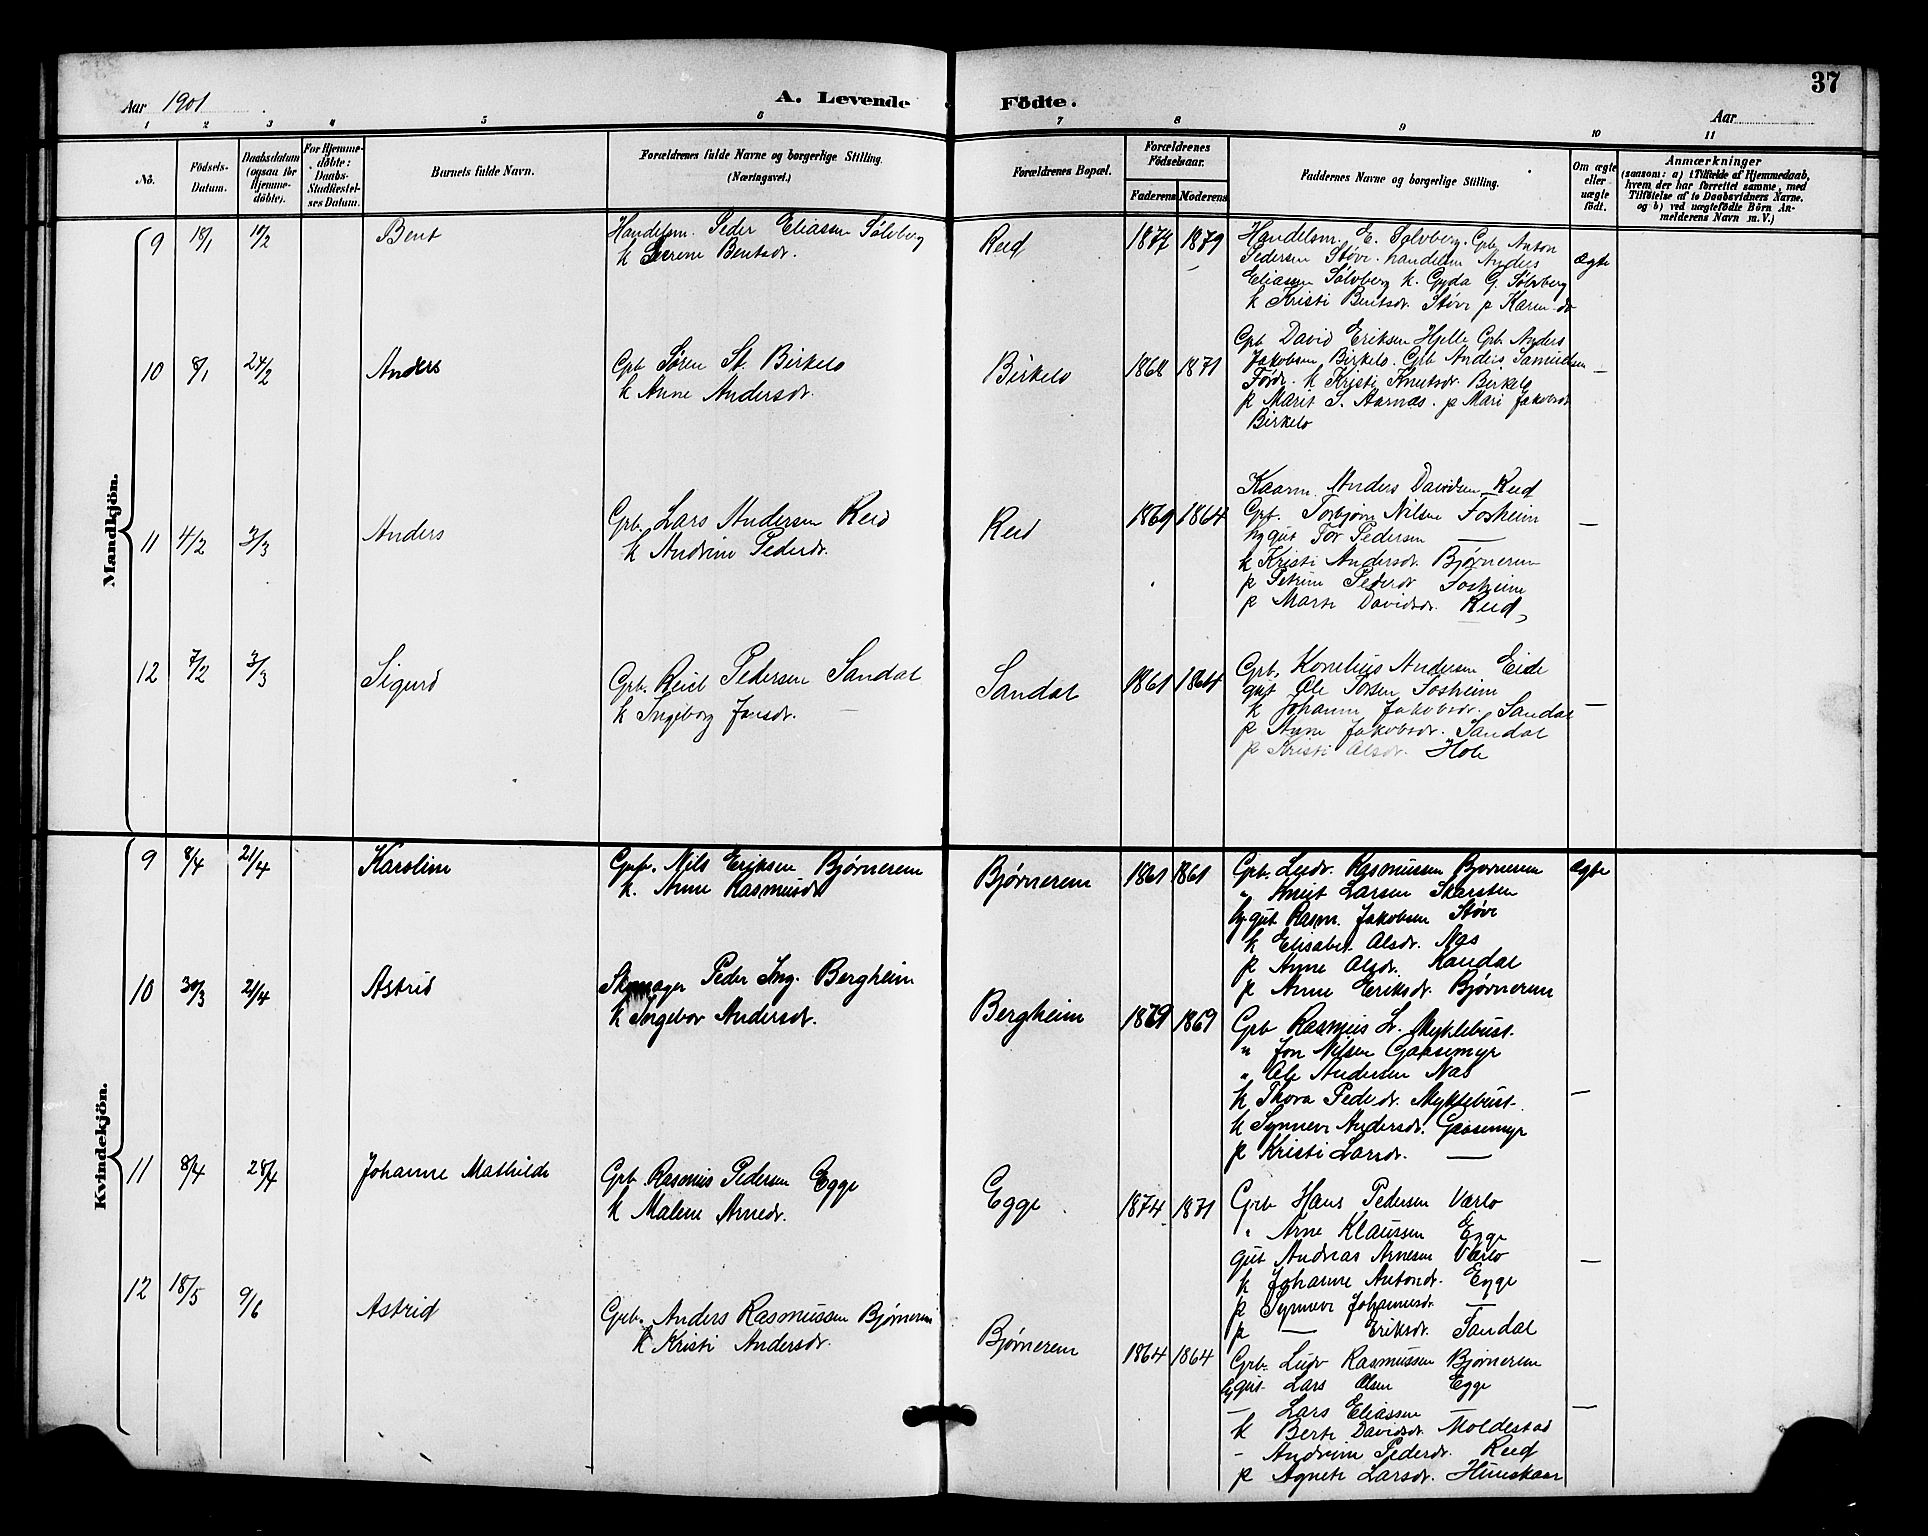 37
Aar 1901
A. Levende Födte.
Aar
1 2 3 4 5 6 7 8 9 10 11
No.
Födsels-Datum.
Daabsdatum (ogsaa for Hjemme-döbte).
For Hjemme-döbte: Daabs-Stadfæstel-ses Datum.
Barnets fulde Navn.
Forældrenes fulde Navne og borgerlige Stilling. (Næringsvei.)
Forældrenes Bopæl.
Forældrenes Födselsaar.
Faderens Moderens
Faddernes Navne og borgerlige Stilling.
Om ægte eller uægte födt.
Anmærkninger
(saasom: a) i Tilfælde af Hjemmedaab, hvem der har forrettet samme, med Tilföielse af to Daabsvidners Navne. og b) ved uægtefödte Börn An-melderens Navn m. V.)
Mandkjön.
9 18/1 10/2 Bent
Handelsm. Peder Eliassen Sölvberg
k Severine Bentsdr.
Reed 1874 1879
Handelsm. E. Solvberg. Grb. Anton
Pedersen Støve. handelsm Anders
Eliassen Sölvberg k. Gyda G. Sölvberg
k Kristi Bentsdr. Støve p Karen do
Ægte
10 8/1 24/2 Anders
Grb Søren St. Birkelo
k Anne Andersdr.
Birkelo 1868 1871
Grb David Eriksen Hjelle Grb Anders
Jakobsen Birkelo. Grb Anders Samuelsen
Førde. k Kristi Knutsdr. Birkelo
p Marit S. Aarnas. p Mari Jakobsdr
Birkelo
—
11 4/2 3/3 Anders
Grb. Lars Andersen Reed
k Andrine Pedersdr.
Reed 1869 1864
Kaarm. Anders Davidsen Reed
Grb. Torbjørn Nilsen Fosheim
Ug gut Tor Pedersen —
k Kristi Andersdr. Bjørnerem
p Petrine Pedersdr Fosheim
p Marte Davidsdr. Reed
—
12 7/2 3/3 Sigurd
Grb. Pedersen Sandal
k Ingeborg Jonsdr. —
Sandal 1861 1864
Grb. Kornelius Andersen Eide
gut Ole Torsen Fosheim
k Johanne Jakobsdr. Sandal
p Anne Jakobsdr. Sandal
p Kristi Olsdr. Hole
—
Kvindekjön.
9 8/4 21/4 Karoline
Grb. Nils Eriksen Bjørnerem
k. Anne Rasmusdr
Bjørnerem 1861 1861
Grb. Ludv. Rasmussen Bjørnerem
" Knut Larsen Skarsten
Ug gut Rasm. Jakobsen Støve
k Elisabet Olsdr. Nas
p Anne Olsdr. Kandal
p Anne Eriksdr. Bjørnerem
Ægte
10 30/3 21/4 Astrid
Skomager Peder Ing. Bergheim
k Ingebor Andersdr.
Bergheim 1869 1869
Grb Rasmus L. Myklebust.
" Jon Nilsen Gaasemyr
" Ole Andersen Nas
k Thora Pedersdr. Myklebust.
k Synneve Andersdr. Gaasemyr
p Kristi Larsdr. —
—
11 8/4 28/4 Johanne Mathilde
Grb Rasmus Pedersen Egge
k Malene Arnedr.
Egge 1874 1871
Grb Hans Pedersen Varlo
" Arne Klaussen Egge
gut Andreas Arnesen Varlo
k Johanne Antondr. Egge
p Synneve Johannesdr. —
p — Eriksdr. Sandal
—
12 18/5 9/6 Astrid
Grb. Anders Rasmussen Bjørnerem
k Kristi Andersdr.
Bjørnerem 1864 1864
Grb. Ludv Rasmussen Bjørnerem
Ug gut Lars Olsen Egge
— Lars Eliassen —
k Berte Davidsdr. Moldestad
- Andrine Pedersdr. Reed
p Agnete Larsdr. Hunskaar
—